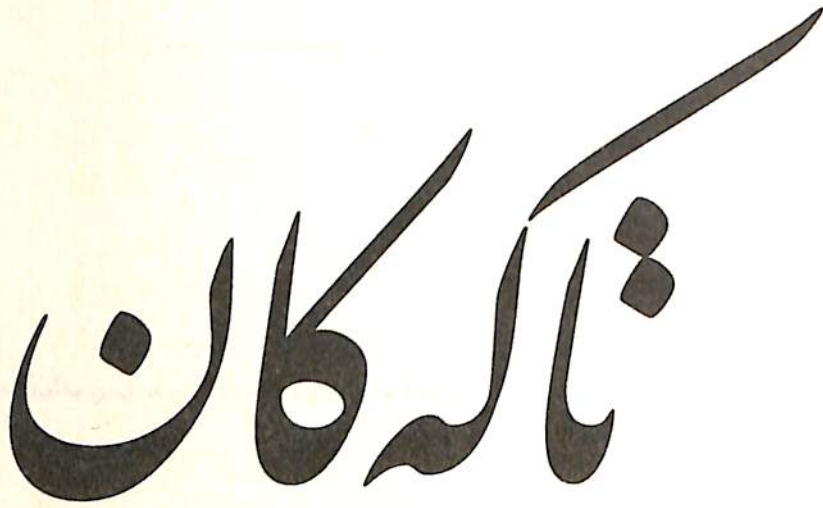 تاکەکان